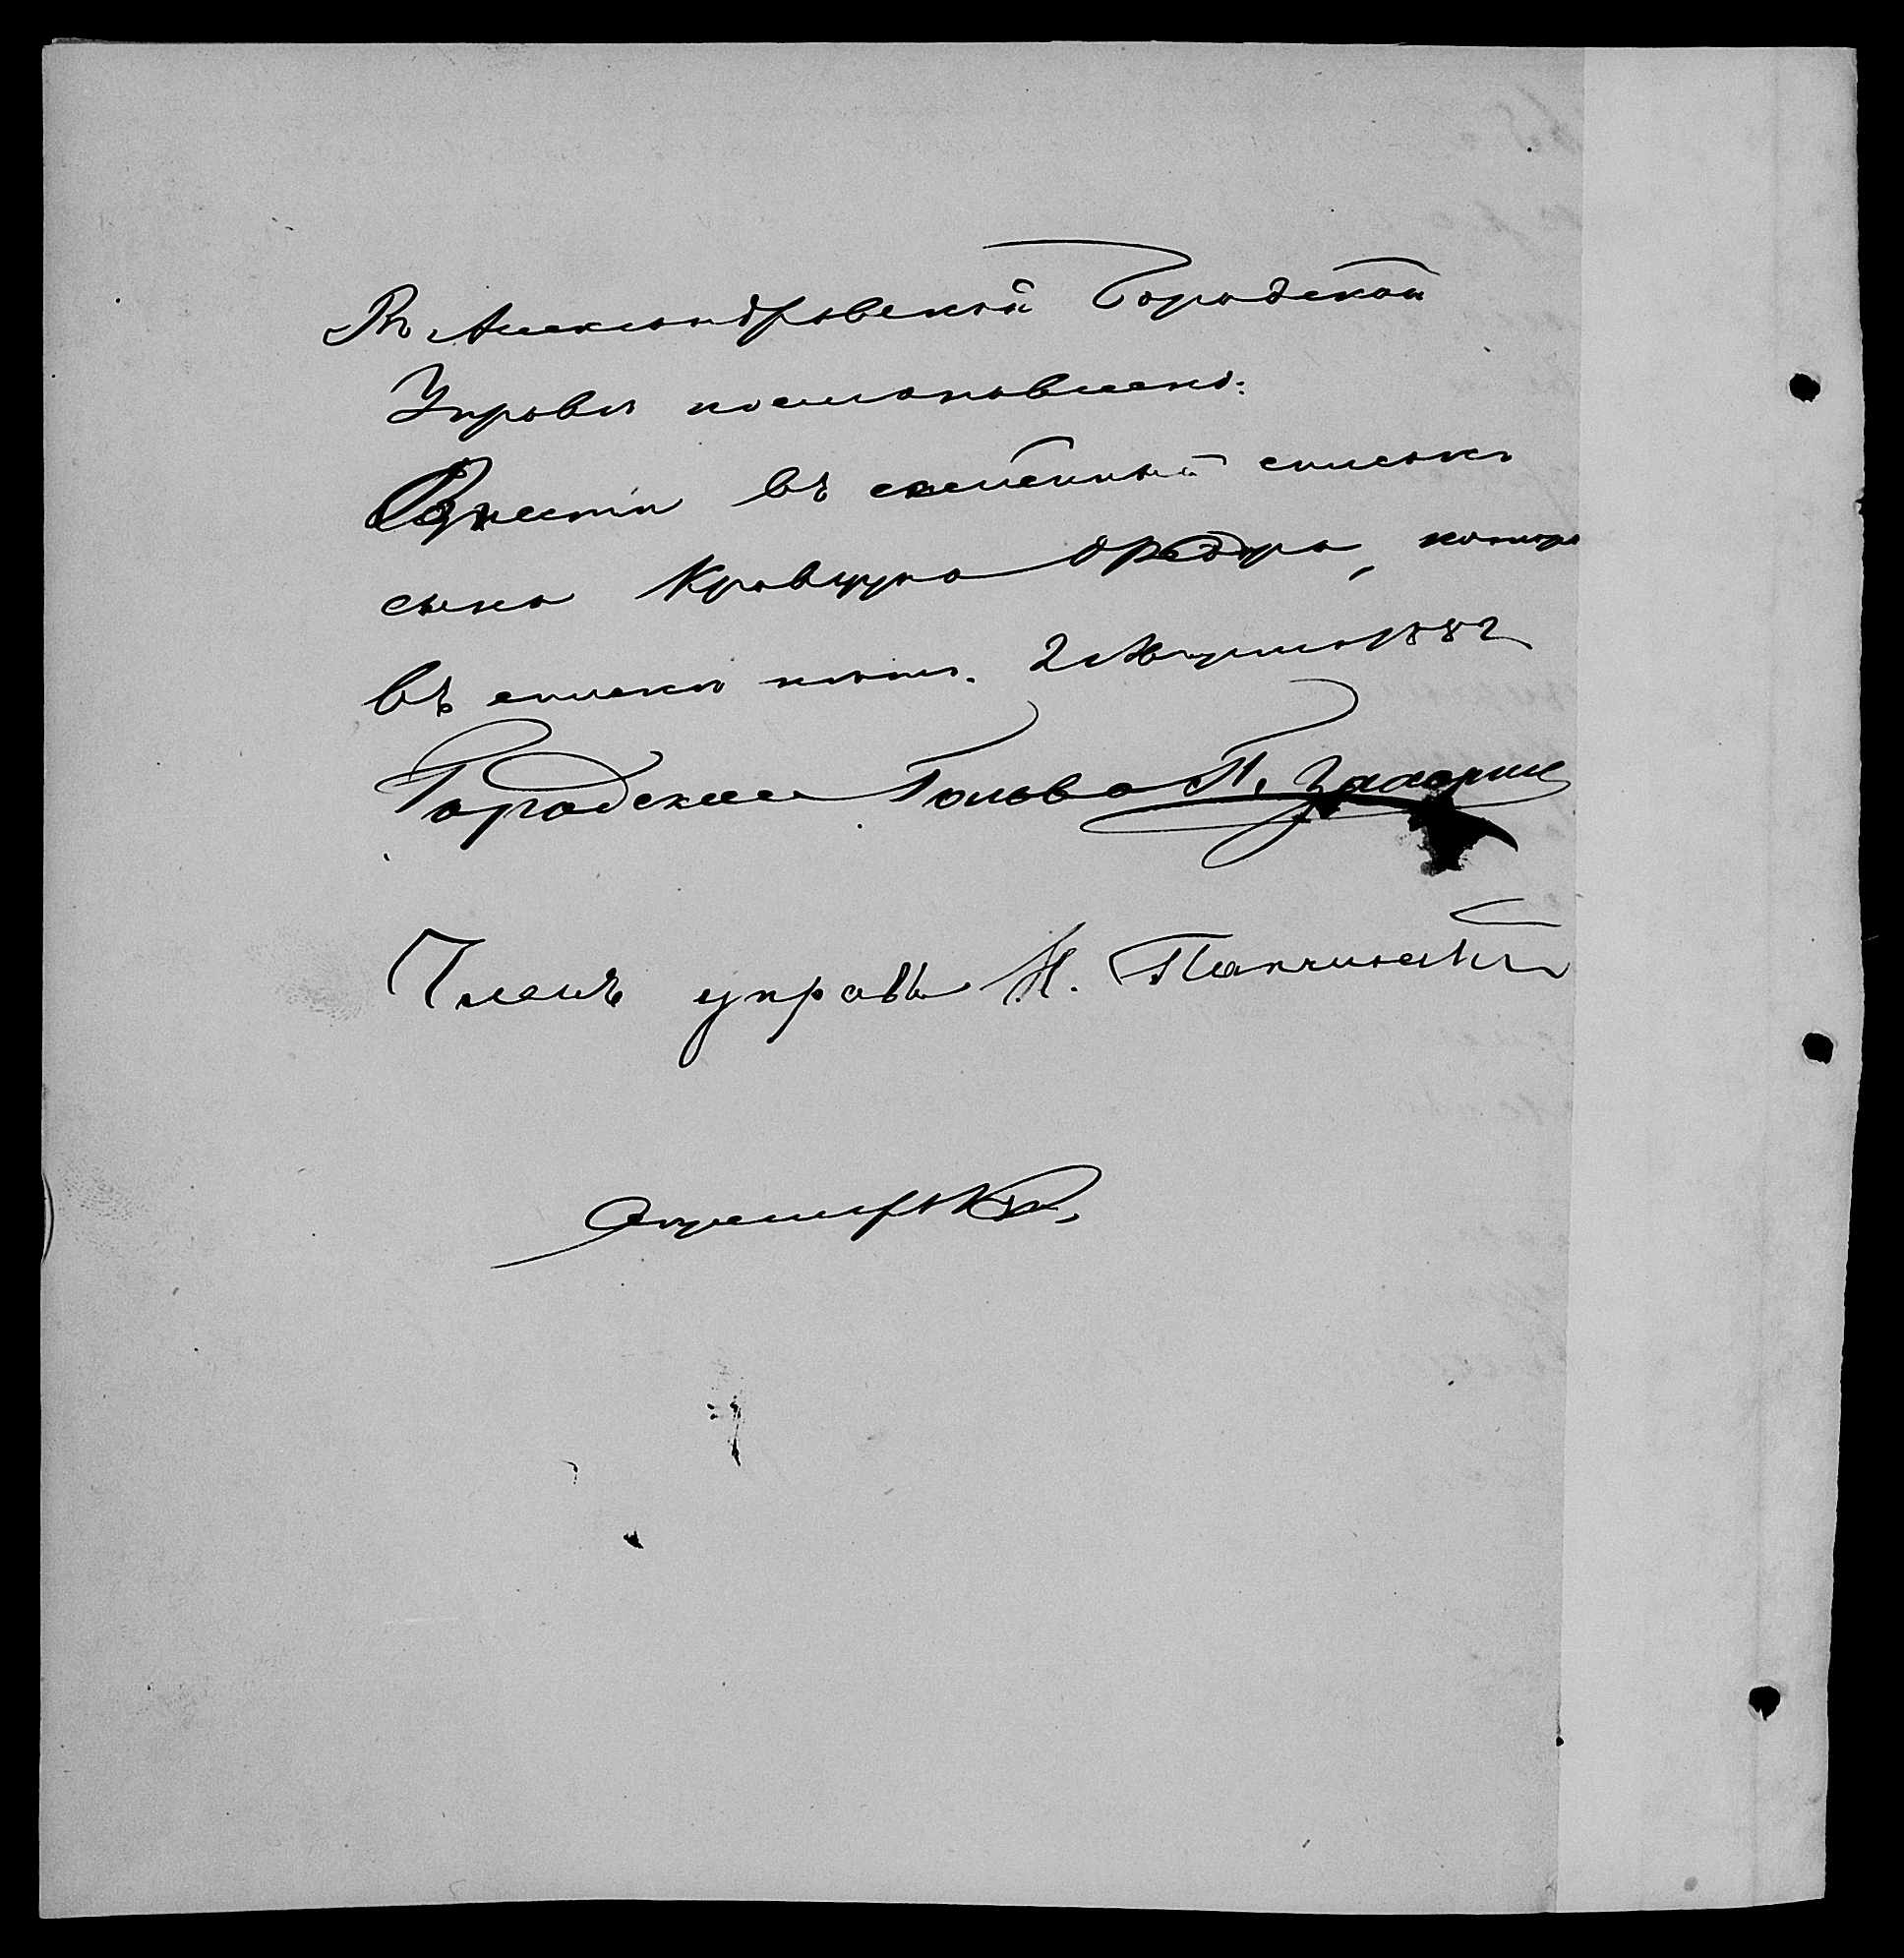 Въ Александровской Городской
Управѣ постановлено:
Внести въ семейный списокъ
сына Кравцура Ѳедора, котор
въ списки 2 Августа 1882
Городской Голова П. Захарин
Членъ управы Н. Панчинскій